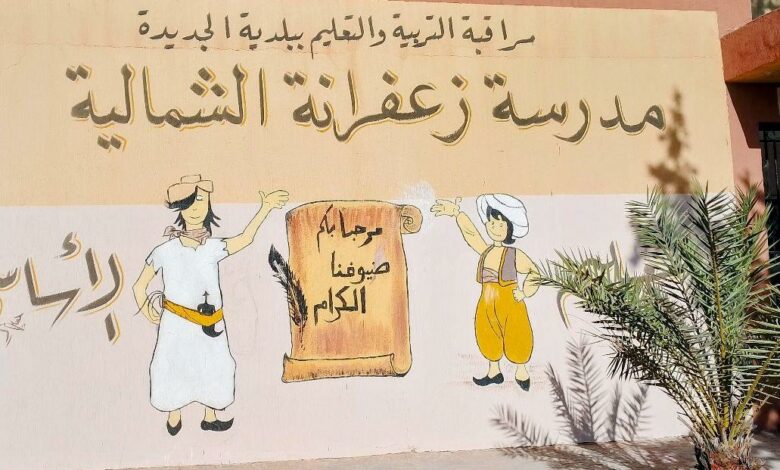 مراقبة التربية والتعليم ببلدية الجديدة
مدرسة زعفرانة الشمالية
مرحبا بكم
ضيوفنا
الكرام